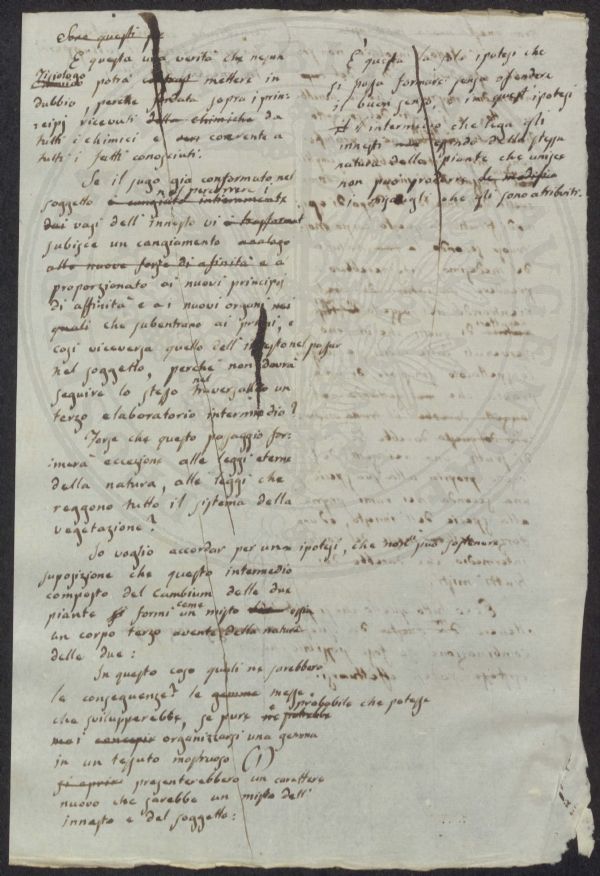 Sono questi pr
E questa una verità che nesun
Fisiologo potrà mettere in
dubbio, perche fondata sopra i prin-
cipj ricevuti dalla chimica da
tutti i chimici e coerente a
tutti i fatti conosciuti.
Se il sugo già conformato nel
soggetto nel percorrere i
dai vasi dell'innesto vi è trasformat
subisce un cangiamento analogo
alle nuove forze di afinità e a
proporzionato ai nuovi principj
di affinità e ai nuovi organi nei
quali che subentrano ai primi, e
cosi viceversa quello dell'innesto nel passar
nel soggetto, perchè non dovrà
seguire lo stesso nel traversando un
terzo elaboratorio intermedio?
Forse che questo passaggio for-
merà eccezione alle leggi eterne
della natura, alle leggi che
reggono tutto il sistema della
vegetazione?
Io voglio accordar per una ipotesi, che non si può sostenere
suposizione che questo intermedio
composto del Cambium delle due
piante formi come un misto ossia
un corpo terzo avente della natura
delle due:
In questo caso quali ne sarebbero
le conseguenze? le gemme messe
che svilupperebbe, se pure è probabile che potesse
mai concepir organizzarsi una gemma
in un tessuto mostruoso (1)
si aprir presenterebbero un carattere
nuovo che sarebbe un misto dell'
innesto e del soggetto:
È questa la sola ipotesi che
si possa formare senza ofendere
il buon senso, e in quest ipotesi
l'intermezzo che lega gli
innesti non essendo della stessa
natura della piante che unisce
non può produrre le modifica
quegli che gli sono atribuiti.